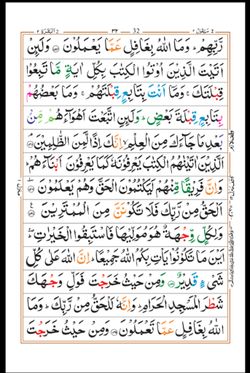 سيقول ٢ ٣٢ البقرة ٢
رَّبِّهِمْ ؕ وَمَا اللّٰهُ بِغَافِلٍ عَمَّا يَعْمَلُوْنَ ۝ وَلَئِنْ
اَتَيْتَ الَّذِيْنَ اُوْتُوا الْكِتٰبَ بِكُلِّ اٰيَةٍ مَّا تَبِعُوْا
قِبْلَتَكَ ۚ وَمَاۤ اَنْتَ بِتَابِعٍ قِبْلَتَهُمْ ۚ وَمَا بَعْضُهُمْ
بِتَابِعٍ قِبْلَةَ بَعْضٍ ؕ وَلَئِنِ اتَّبَعْتَ اَهْوَآءَهُمْ مِّنْۢ
بَعْدِ مَا جَآءَكَ مِنَ الْعِلْمِ ۙ اِنَّكَ اِذًا لَّمِنَ الظّٰلِمِيْنَ ۝
اَلَّذِيْنَ اٰتَيْنٰهُمُ الْكِتٰبَ يَعْرِفُوْنَهٗ كَمَا يَعْرِفُوْنَ اَبْنَآءَهُمْ ؕ
وَاِنَّ فَرِيْقًا مِّنْهُمْ لَيَكْتُمُوْنَ الْحَقَّ وَهُمْ يَعْلَمُوْنَ ۝
اَلْحَقُّ مِنْ رَّبِّكَ فَلَا تَكُوْنَنَّ مِنَ الْمُمْتَرِيْنَ ۝
وَلِكُلٍّ وِّجْهَةٌ هُوَ مُوَلِّيْهَا فَاسْتَبِقُوا الْخَيْرٰتِ ؕ اَيْنَ
مَا تَكُوْنُوْا يَاْتِ بِكُمُ اللّٰهُ جَمِيْعًا ؕ اِنَّ اللّٰهَ عَلٰى كُلِّ
شَىْءٍ قَدِيْرٌ ۝ وَمِنْ حَيْثُ خَرَجْتَ فَوَلِّ وَجْهَكَ
شَطْرَ الْمَسْجِدِ الْحَرَامِ ؕ وَاِنَّهٗ لَلْحَقُّ مِنْ رَّبِّكَ ؕ وَمَا
اللّٰهُ بِغَافِلٍ عَمَّا تَعْمَلُوْنَ ۝ وَمِنْ حَيْثُ خَرَجْتَ